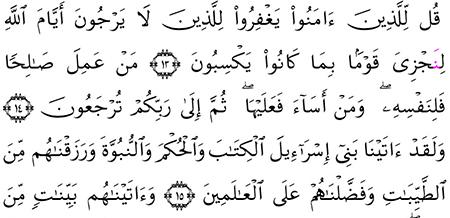 قُل لِّلَّذِينَ ءَامَنُوا۟ يَغْفِرُوا۟ لِلَّذِينَ لَا يَرْجُونَ أَيَّامَ ٱللَّهِ
لِنَجْزِىَ قَوْمًۢا بِمَا كَانُوا۟ يَكْسِبُونَ ١٣ مَنْ عَمِلَ صَـٰلِحًا
فَلِنَفْسِهِۦ ۖ وَمَنْ أَسَآءَ فَعَلَيْهَا ۖ ثُمَّ إِلَىٰ رَبِّكُمْ تُرْجَعُونَ ١٤
وَلَقَدْ ءَاتَيْنَا بَنِىٓ إِسْرَٰٓءِيلَ ٱلْكِتَـٰبَ وَٱلْحُكْمَ وَٱلنُّبُوَّةَ وَرَزَقْنَـٰهُم مِّنَ
ٱلطَّيِّبَـٰتِ وَفَضَّلْنَـٰهُمْ عَلَى ٱلْعَـٰلَمِينَ ١٥ وَءَاتَيْنَـٰهُم بَيِّنَـٰتٍ مِّنَ